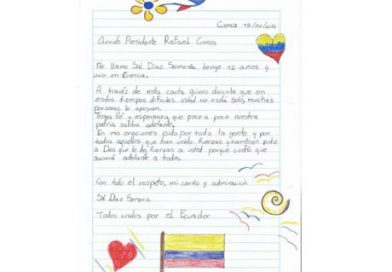 Cuenca 18/04/2016
Querido Presidente Rafael Correa
Me llamo Sol Díaz tengo 12 años y
vivo en Cuenca.
A través de esta carta quiero decirte que en
estos tiempos difíciles usted no está solo, muchas
personas le apoyan.
Tenga fé y esperanza que poco a poco nuestra
patria saldrá adelante.
En mis oraciones pido por toda la gente y por
todos aquellos que han unido fuerzas y también pido
a Dios que le de fuerzas a usted porque confío que
sacará adelante a todos.
Con todo el respeto, mi cariño y admiración
Sol Díaz
Todos unidos por el Ecuador